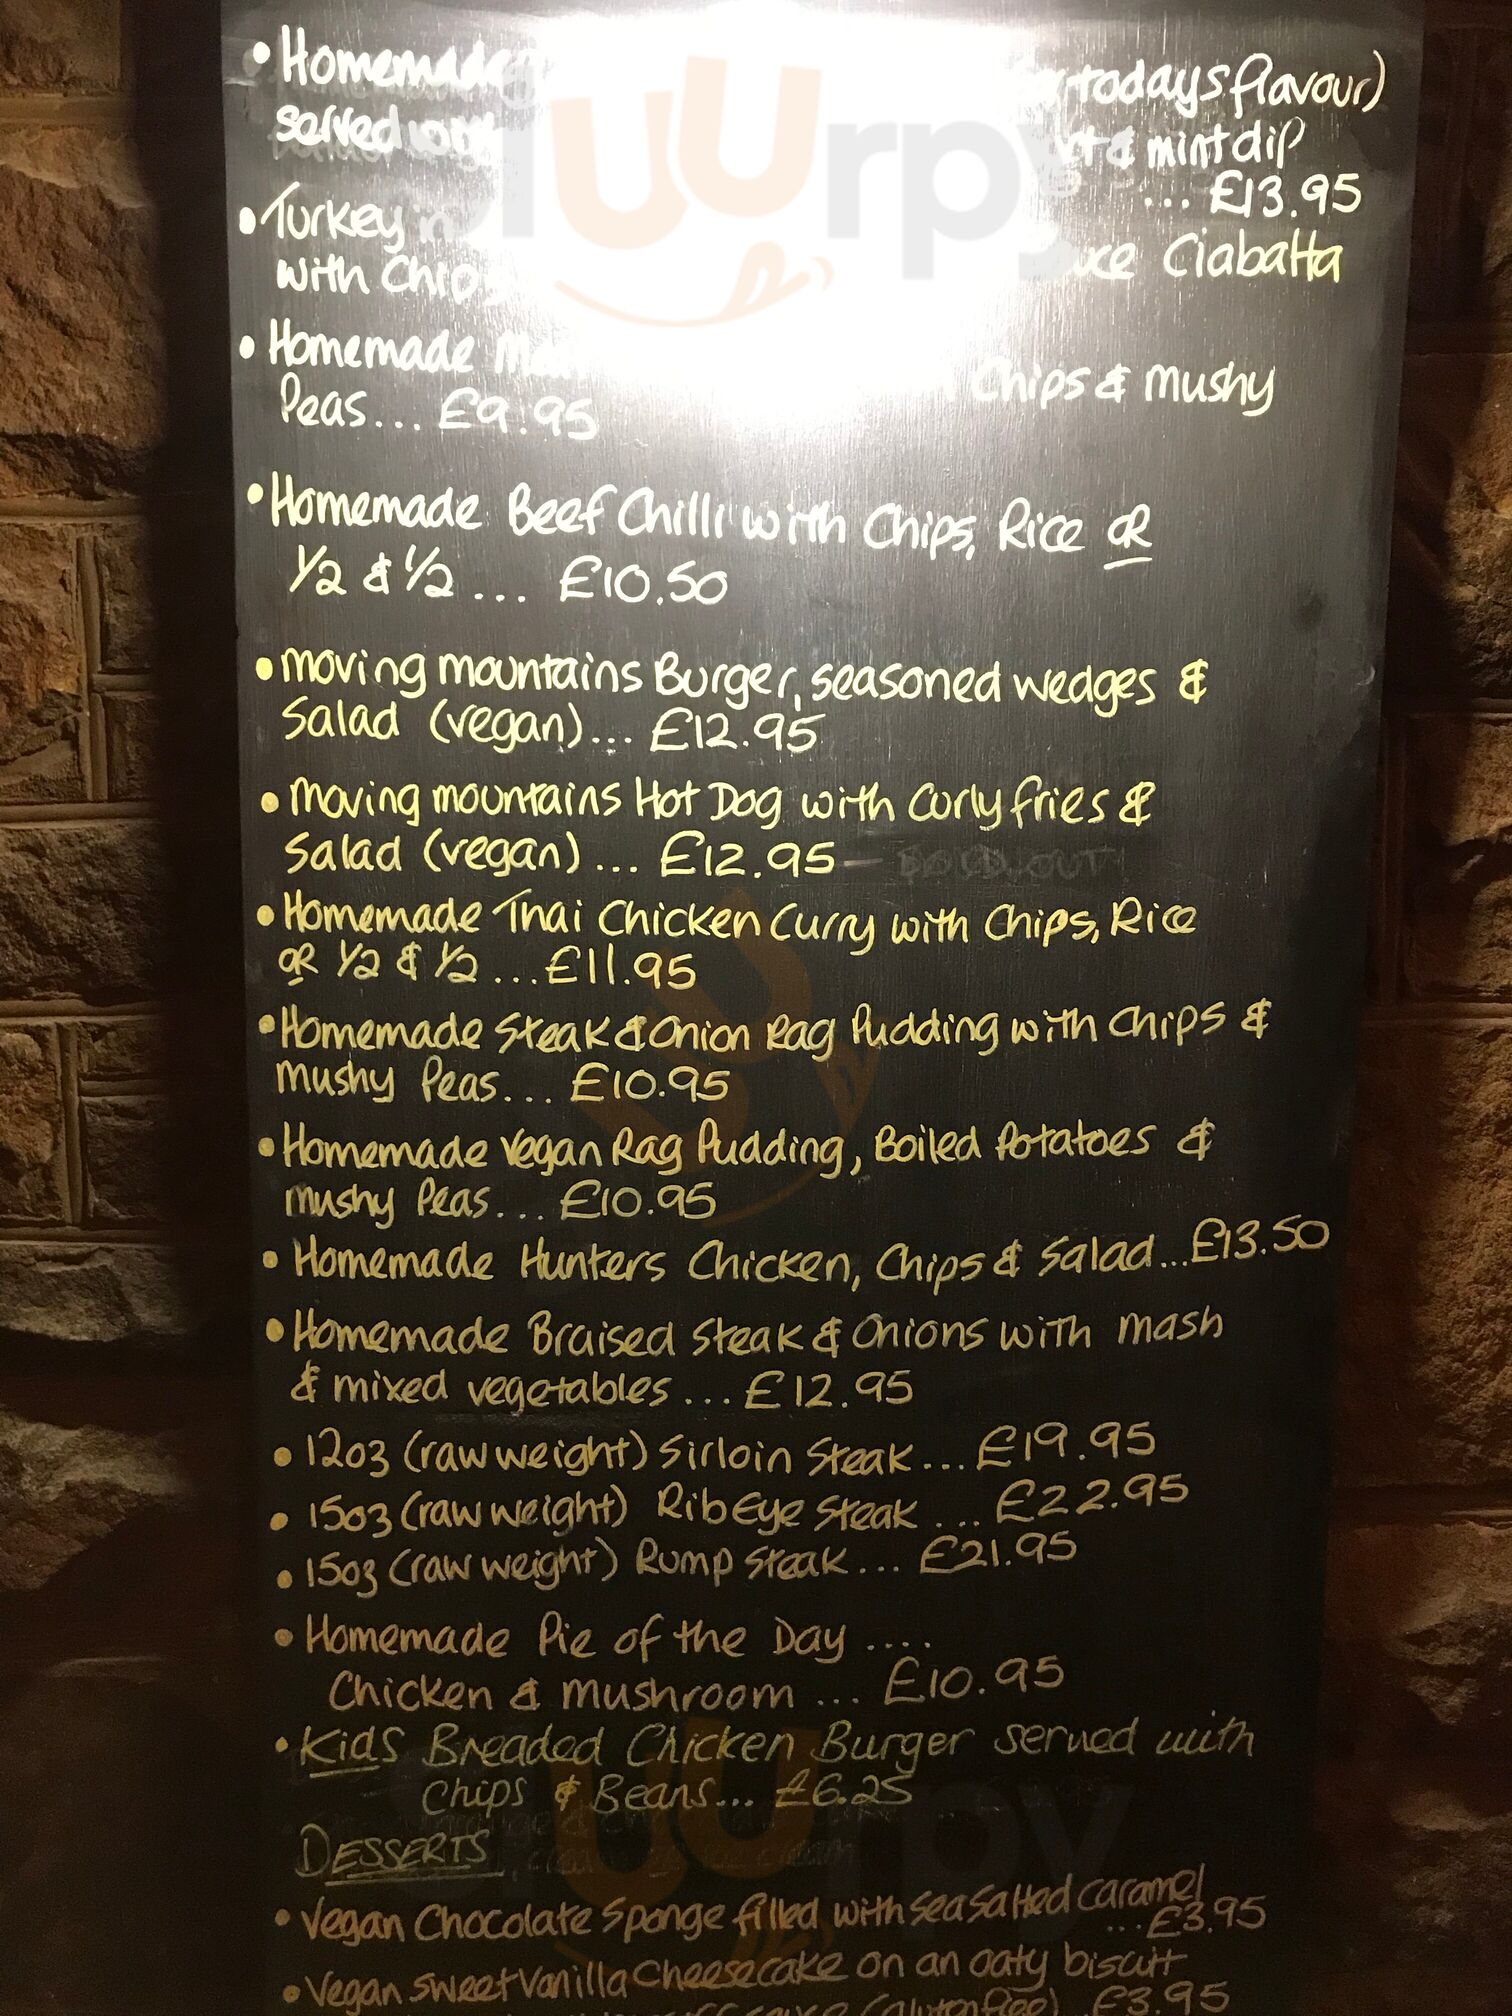 • Homemade todays flavour)
served & mint dip
... £13.95
• Turkey in Ciabatta
with Chips
• Homemade Chips & Mushy
Peas... £9.95
• Homemade Beef Chilli with Chips, Rice OR
1/2 & 1/2 ... £10.50
• Moving mountains Burger, seasoned wedges &
Salad (vegan)... £12.95
• Moving mountains Hot Dog with Curly fries &
Salad (vegan)... £12.95 - SOLD OUT
• Homemade Thai Chicken Curry with Chips, Rice
OR 1/2 & 1/2 ... £11.95
• Homemade Steak & Onion Rag Pudding with Chips &
Mushy Peas... £10.95
• Homemade Vegan Rag Pudding, Boiled Potatoes &
Mushy Peas... £10.95
• Homemade Hunters Chicken, Chips & Salad...£13.50
• Homemade Braised Steak & Onions with mash
& mixed vegetables ... £12.95
• 12oz (raw weight) Sirloin Steak... £19.95
• 15oz (raw weight) RibEye Steak ... £22.95
• 15oz (raw weight) Rump Steak... £21.95
• Homemade Pie of the Day ....
Chicken & Mushroom ... £10.95
• Kids Breaded Chicken Burger served with
Chips & Beans... £6.25
DESSERTS
• Vegan Chocolate Sponge filled with sea salted caramel
...£3.95
• Vegan Sweet Vanilla Cheesecake on an oaty biscuit
sauce (gluten free) £3.95
sluurpy